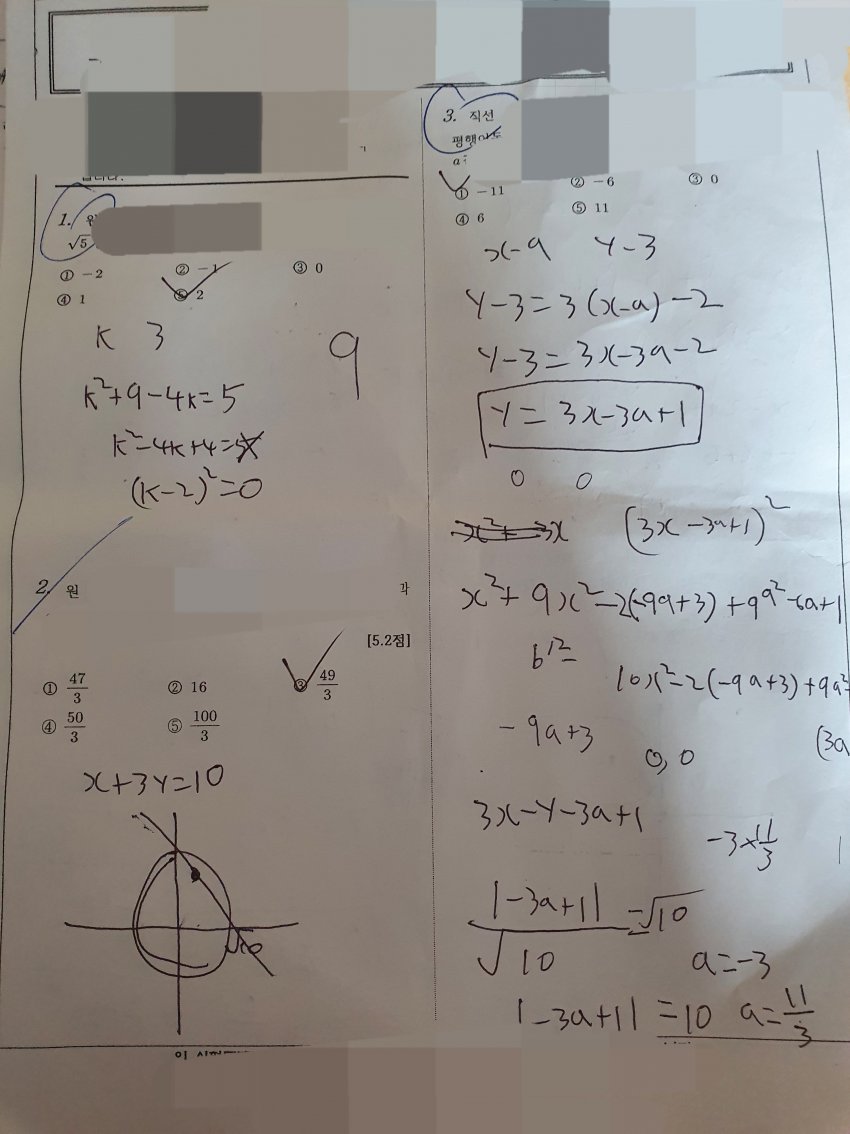 1. 원
√5
① −2 ② −1 ③ 0
④ 1 ⑤ 2
K 3
9
K²+9−4K=5
K²−4K+4=
(K−2)²=0
2. 원
각
[5.2점]
① 47/3 ② 16 ③ 49/3
④ 50/3 ⑤ 100/3
x+3y=10
√10
3. 직선
평행이동
a
① −11 ② −6 ③ 0
④ 6 ⑤ 11
x−a y−3
y−3=3(x−a)−2
y−3=3x−3a−2
y=3x−3a+1
0 0
(3x−3a+1)²
x²+9x²−2(−9a+3)+9a²−6a+1
b'²=
10x²−2(−9a+3)+9a²
−9a+3
(3a
0,0
3x−y−3a+1
−3×11/3
|−3a+1|/√10=√10
a=−3
|−3a+1|=10 a=11/3